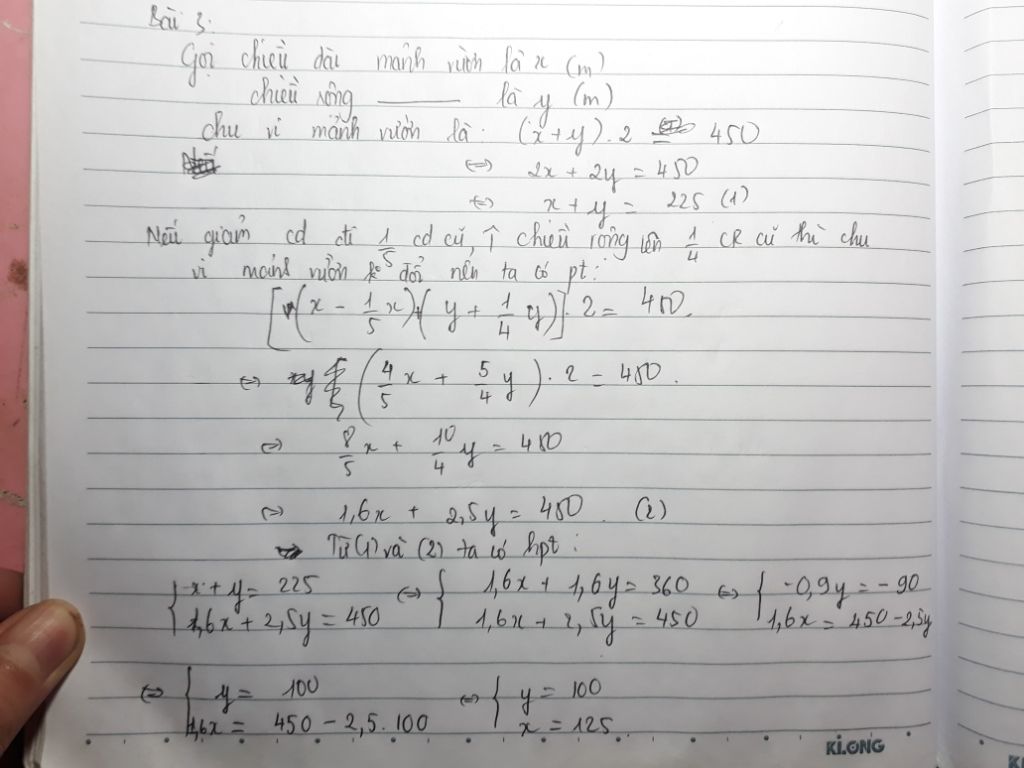 Bài 3:
Gọi chiều dài mảnh vườn là x (m)
chiều rộng ——— là y (m)
chu vi mảnh vườn là: (x+y).2 = 450
⇔ 2x + 2y = 450
⇔ x + y = 225 (1)
Nếu giảm cd đi 1/5 cd cũ, ↑ chiều rộng lên 1/4 CR cũ thì chu
vi mảnh vườn k° đổi nên ta có pt:
[(x - 1/5 x)+(y + 1/4 y)].2 = 450.
⇔ (4/5 x + 5/4 y).2 = 450.
⇔ 8/5 x + 10/4 y = 450
⇔ 1,6x + 2,5y = 450. (2)
Từ (1) và (2) ta có hpt:
{ x + y = 225 ⇔ { 1,6x + 1,6y = 360 ⇔ { -0,9y = -90
1,6x + 2,5y = 450 1,6x + 2,5y = 450 1,6x = 450 - 2,5y
⇔ { y = 100 ⇔ { y = 100
1,6x = 450 - 2,5.100 x = 125
KLONG